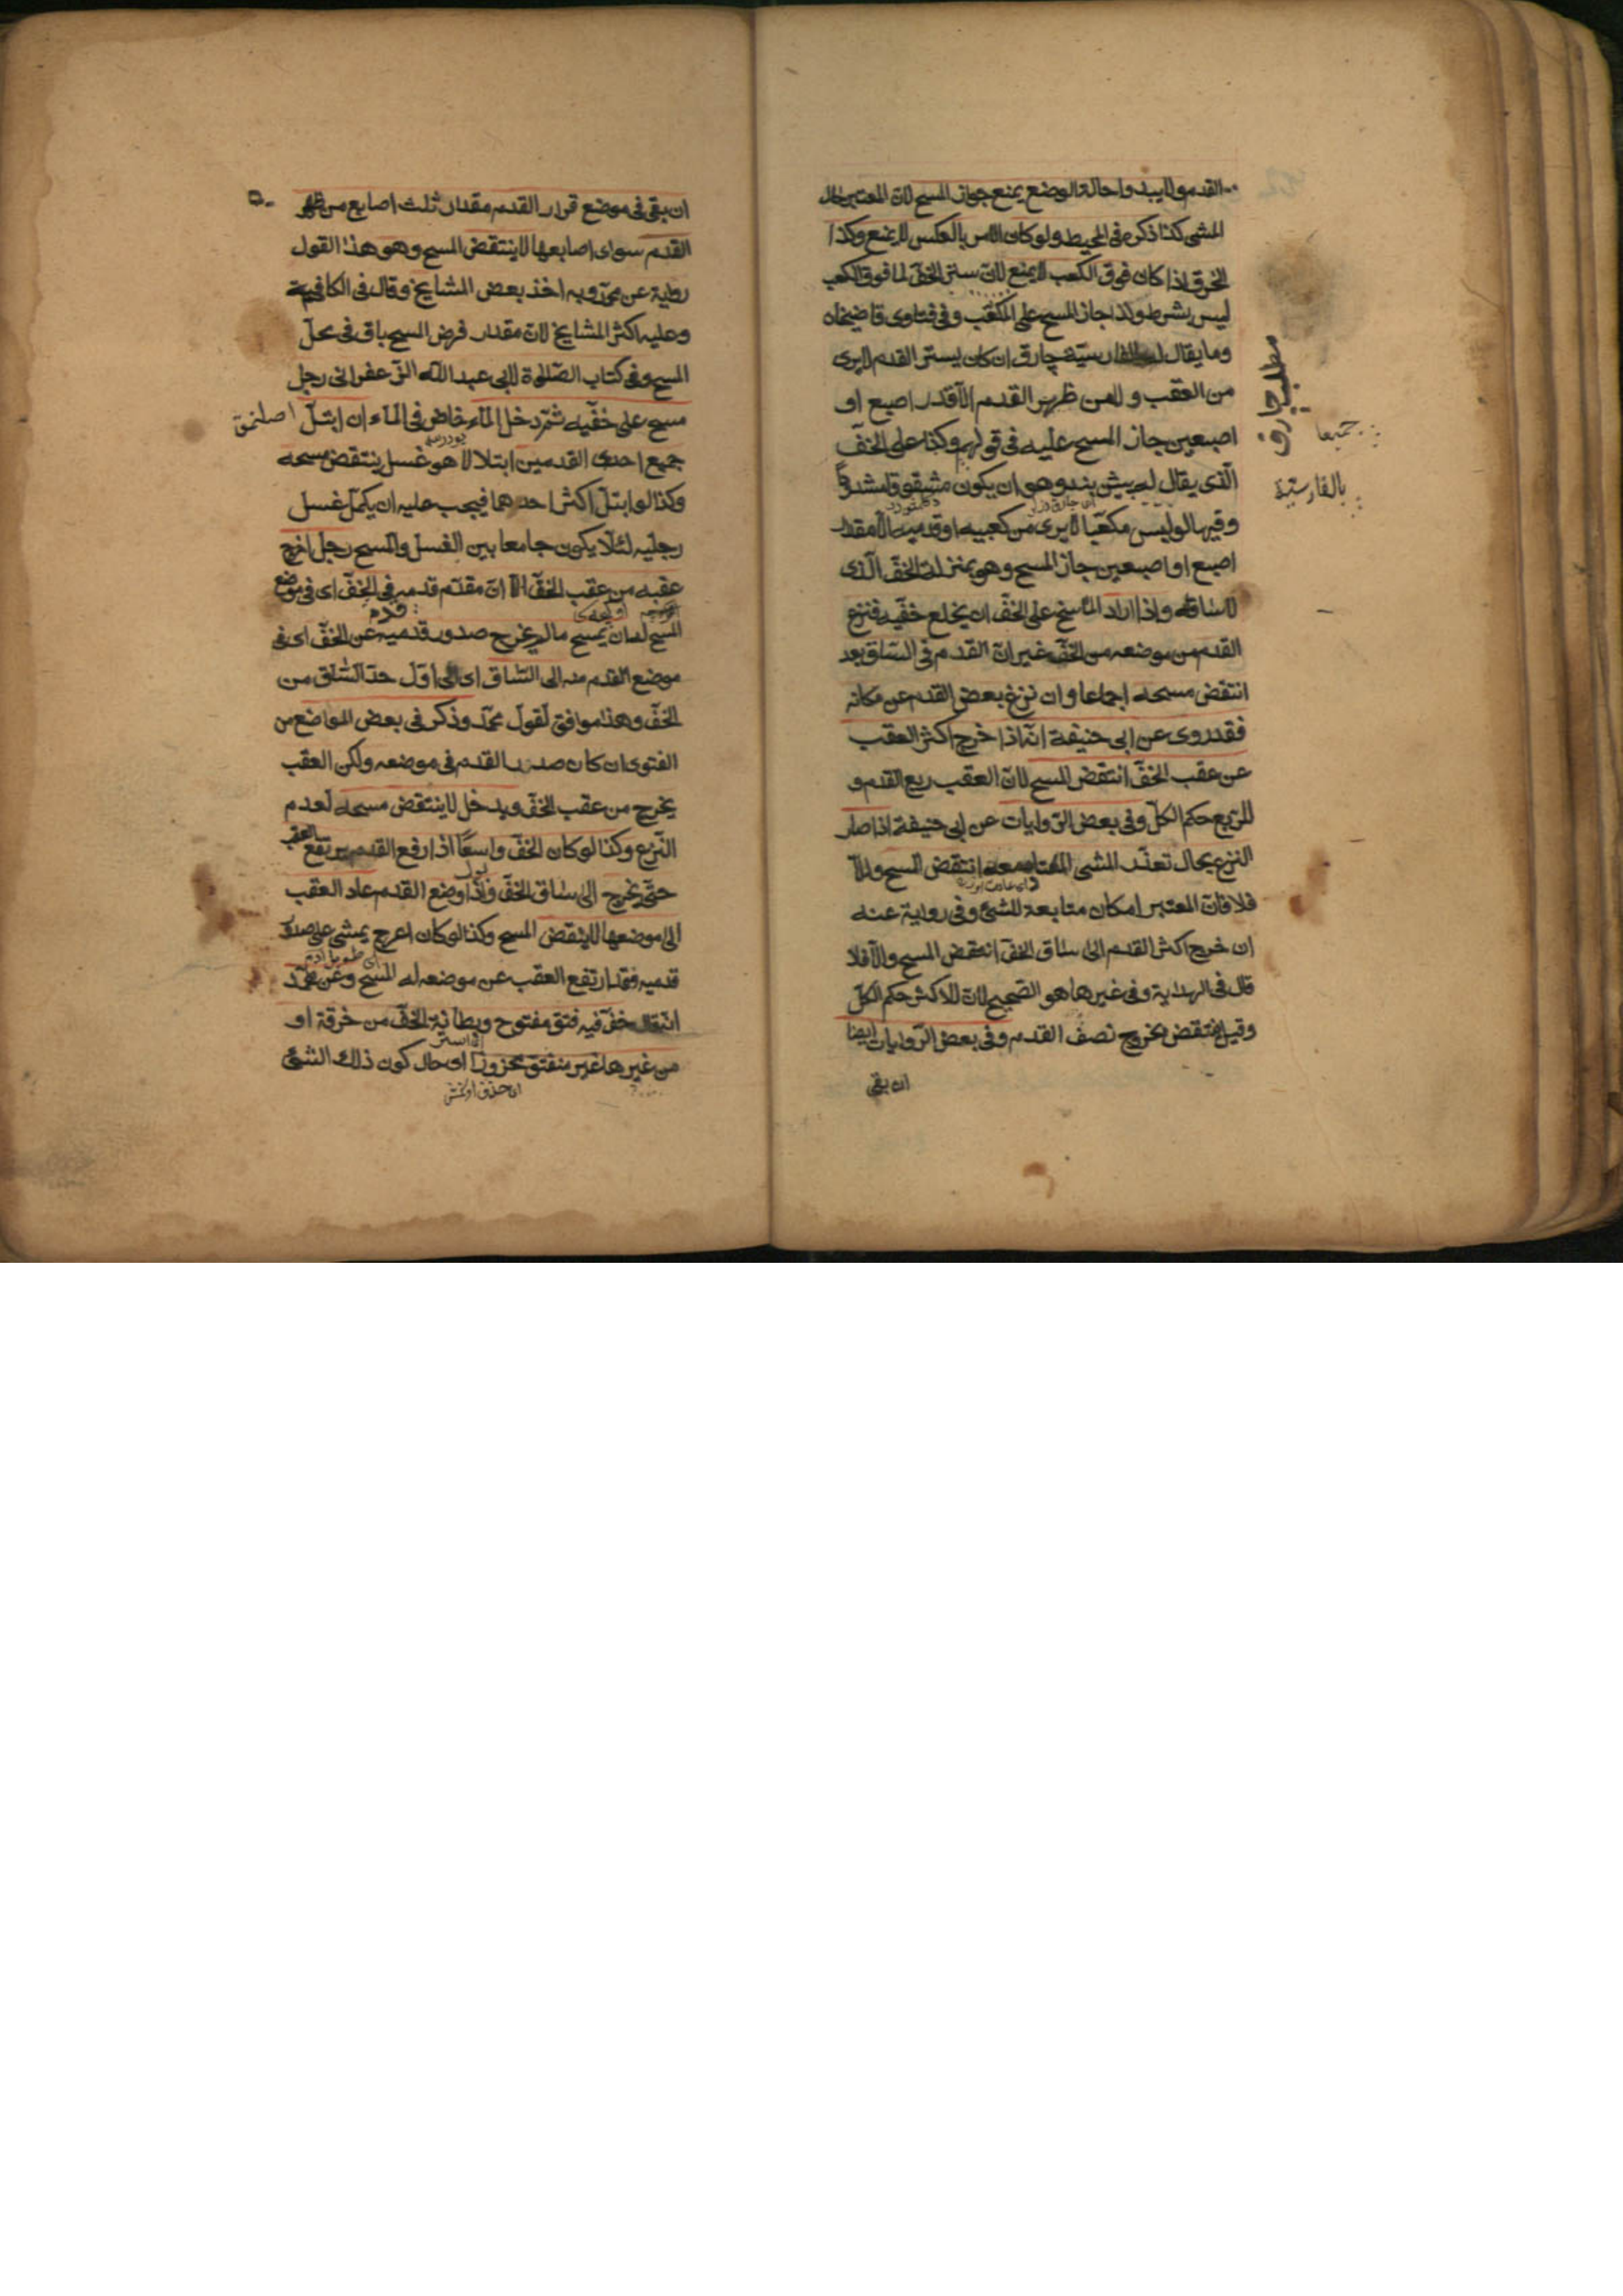 القدم ولا يبدوا حالة الوضع يمنع جواز المسح لان المعتبر حال
المشى كذا ذكره فى المحيط ولو كان الامر بالعكس لا يمنع وكذا
الخرق اذا كان فوق الكعب لا يمنع لان ستر الخف لما فوق الكعب
ليس بشرط ولذا جاز المسح على المكعب وفى فتاوى قاضيخان
وما يقال له بالفارسية چارق ان كان يستر القدم لا يرى
من العقب ولا من ظهر القدم الا قدر اصبع او
اصبعين جاز المسح عليه فى قولهم وكذا على الخف
الذى يقال له پيش بند وهو ان يكون مشقوقا مشدودا
وفيها لو لبس مكعبا لا يرى من كعبيه او قدميه الا مقدار
اصبع او اصبعين جاز المسح وهو بمنزلة الخف الذى
لا ساق له واذا اراد الماسح على الخف ان يخلع خفيه فنزع
القدم من موضعه من الخف غير ان القدم فى الساق بعد
انتقض مسحه اجماعا وان نزع بعض القدم عن مكانه
فقد روى عن ابى حنيفة انه اذا خرج اكثر العقب
عن عقب الخف انتقض المسح لان العقب ربع القدم و
للربع حكم الكل وفى بعض الروايات عن ابى حنيفة اذا صار
النزع بحال تعذر المشى المعتاد معه انتقض المسح والا
فلا فان المعتبر امكان متابعة المشى وفى رواية عنه
ان خرج اكثر القدم الى ساق الخف انتقض المسح والا فلا
قال فى الهداية وفى غيرها هو الصحيح لان للاكثر حكم الكل
وقيل ينتقض بخروج نصف القدم وفى بعض الروايات ايضا
ان بقى
مطلب چارق
جميعا
بالفارسية
ان بقى فى موضع قرار القدم مقدار ثلث اصابع من ظهر
القدم سوى اصابعها لا ينتقض المسح وهو هذا القول
رواية عن محمد وبه اخذ بعض المشايخ وقال فى الكافى
وعليه اكثر المشايخ لان مقدار فرض المسح باق فى محل
المسح وفى كتاب الصلوة لابى عبد الله الزعفرانى رجل
مسح على خفيه ثم دخل الماء خاض فى الماء ان ابتل
جميع احدى القدمين ابتلالا هو غسل ينتقض مسحه
وكذا لو ابتل اكثر احدهما فيجب عليه ان يكمل غسل
رجليه لئلا يكون جامعا بين الغسل والمسح رجل اخرج
عقبه من عقب الخف الا ان مقدم قدمه فى الخف اى فى موضع
المسح له ان يمسح ما لم يخرج صدور قدميه عن الخف اى فى
موضع القدم منه الى الساق اى الى اول حد الساق من
الخف وهذا موافق لقول محمد وذكر فى بعض المواضع من
الفتوى ان كان صدر القدم فى موضعه ولكن العقب
يخرج من عقب الخف ويدخل لا ينتقض مسحه لعدم
النزع وكذا لو كان الخف واسعا اذا رفع القدم يرتفع العقب
حتى يخرج الى ساق الخف واذا وضع القدم عاد العقب
الى موضعها لا ينتقض المسح وكذا لو كان اعرج يمشى على صدور
قدميه فقد ارتفع العقب عن موضعه له المسح وعن محمد
انه قال خف فيه فتق مفتوح وبطانة الخف من خرقة او
من غيرها غير منفتق مخروزا اى حال كون ذلك الشئ